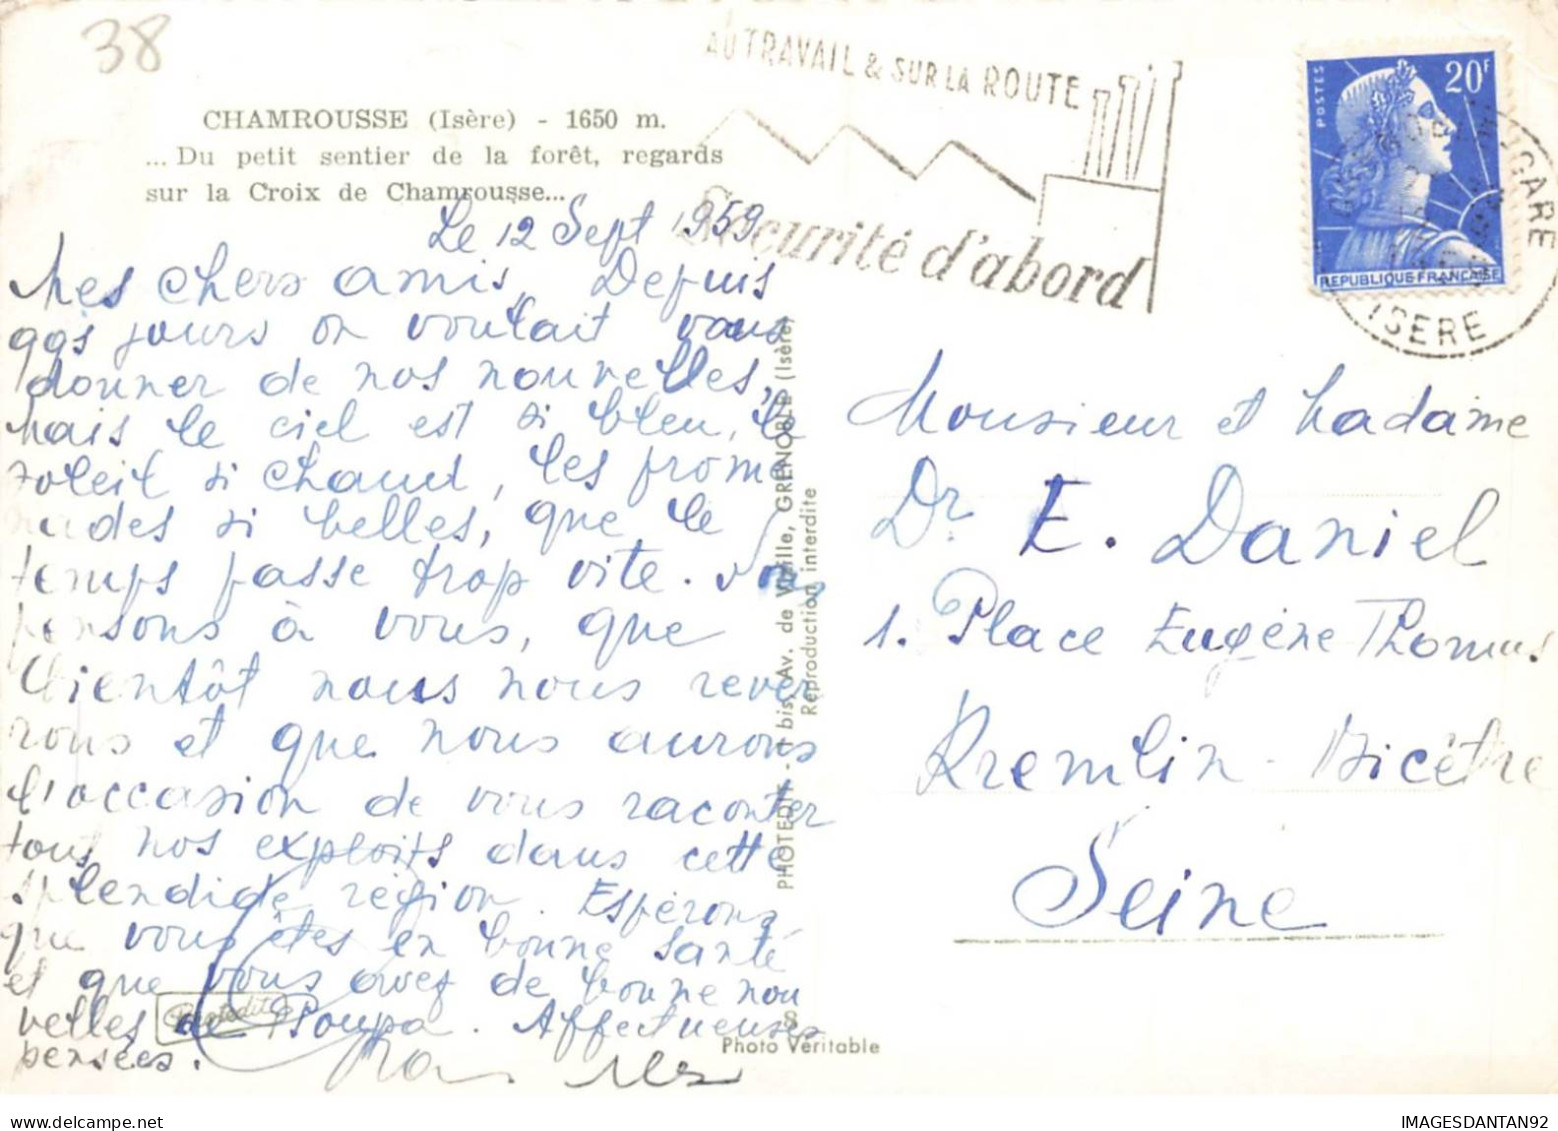 38
AU TRAVAIL & SUR LA ROUTE
Sécurité d'abord
POSTES
20F
REPUBLIQUE FRANÇAISE
GARE
ISERE
CHAMROUSSE (Isère) - 1650 m.
... Du petit sentier de la forêt, regards
sur la Croix de Chamrousse...
Le 12 Sept 1959
Mes chers amis, Depuis
qqs jours on voulait vous
donner de nos nouvelles,
Mais le ciel est si bleu, le
soleil si chaud, les prome
nades si belles, que le
temps passe trop vite. Nous
pensons à vous, que
bientôt nous nous rever
rons et que nous aurons
l'occasion de vous raconter
tous nos exploits dans cette
splendide région. Espérons
que vous êtes en bonne santé
et que vous avez de bonne nou
velles de Poupa. Affectueuses
pensées.
Photédit
PHOTEDIT - 1 bis, Av. de Vizille, GRENOBLE (Isère)
Reproduction interdite
8
Photo Véritable
Monsieur et Madame
Dr E. Daniel
1. Place Eugène Thomas
Kremlin-Bicêtre
Seine
IMAGESDANTAN92